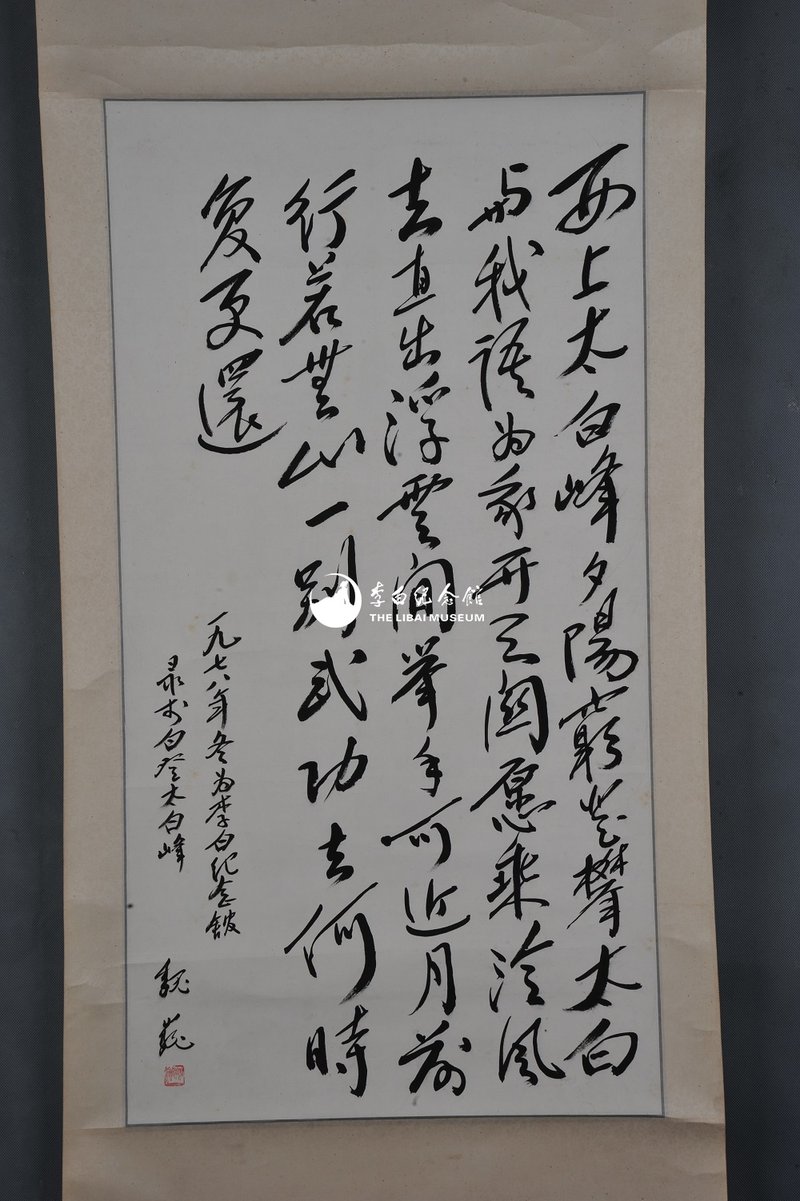 西上太白峰夕陽窮登攀太白
与我語为我开天關愿乘泠风
去直出浮雲间举手可近月前
行若無山一别武功去何時
复更還
一九七八年冬为李白纪念馆
录李白登太白峰
魏巍
李白纪念館
THE LIBAI MUSEUM